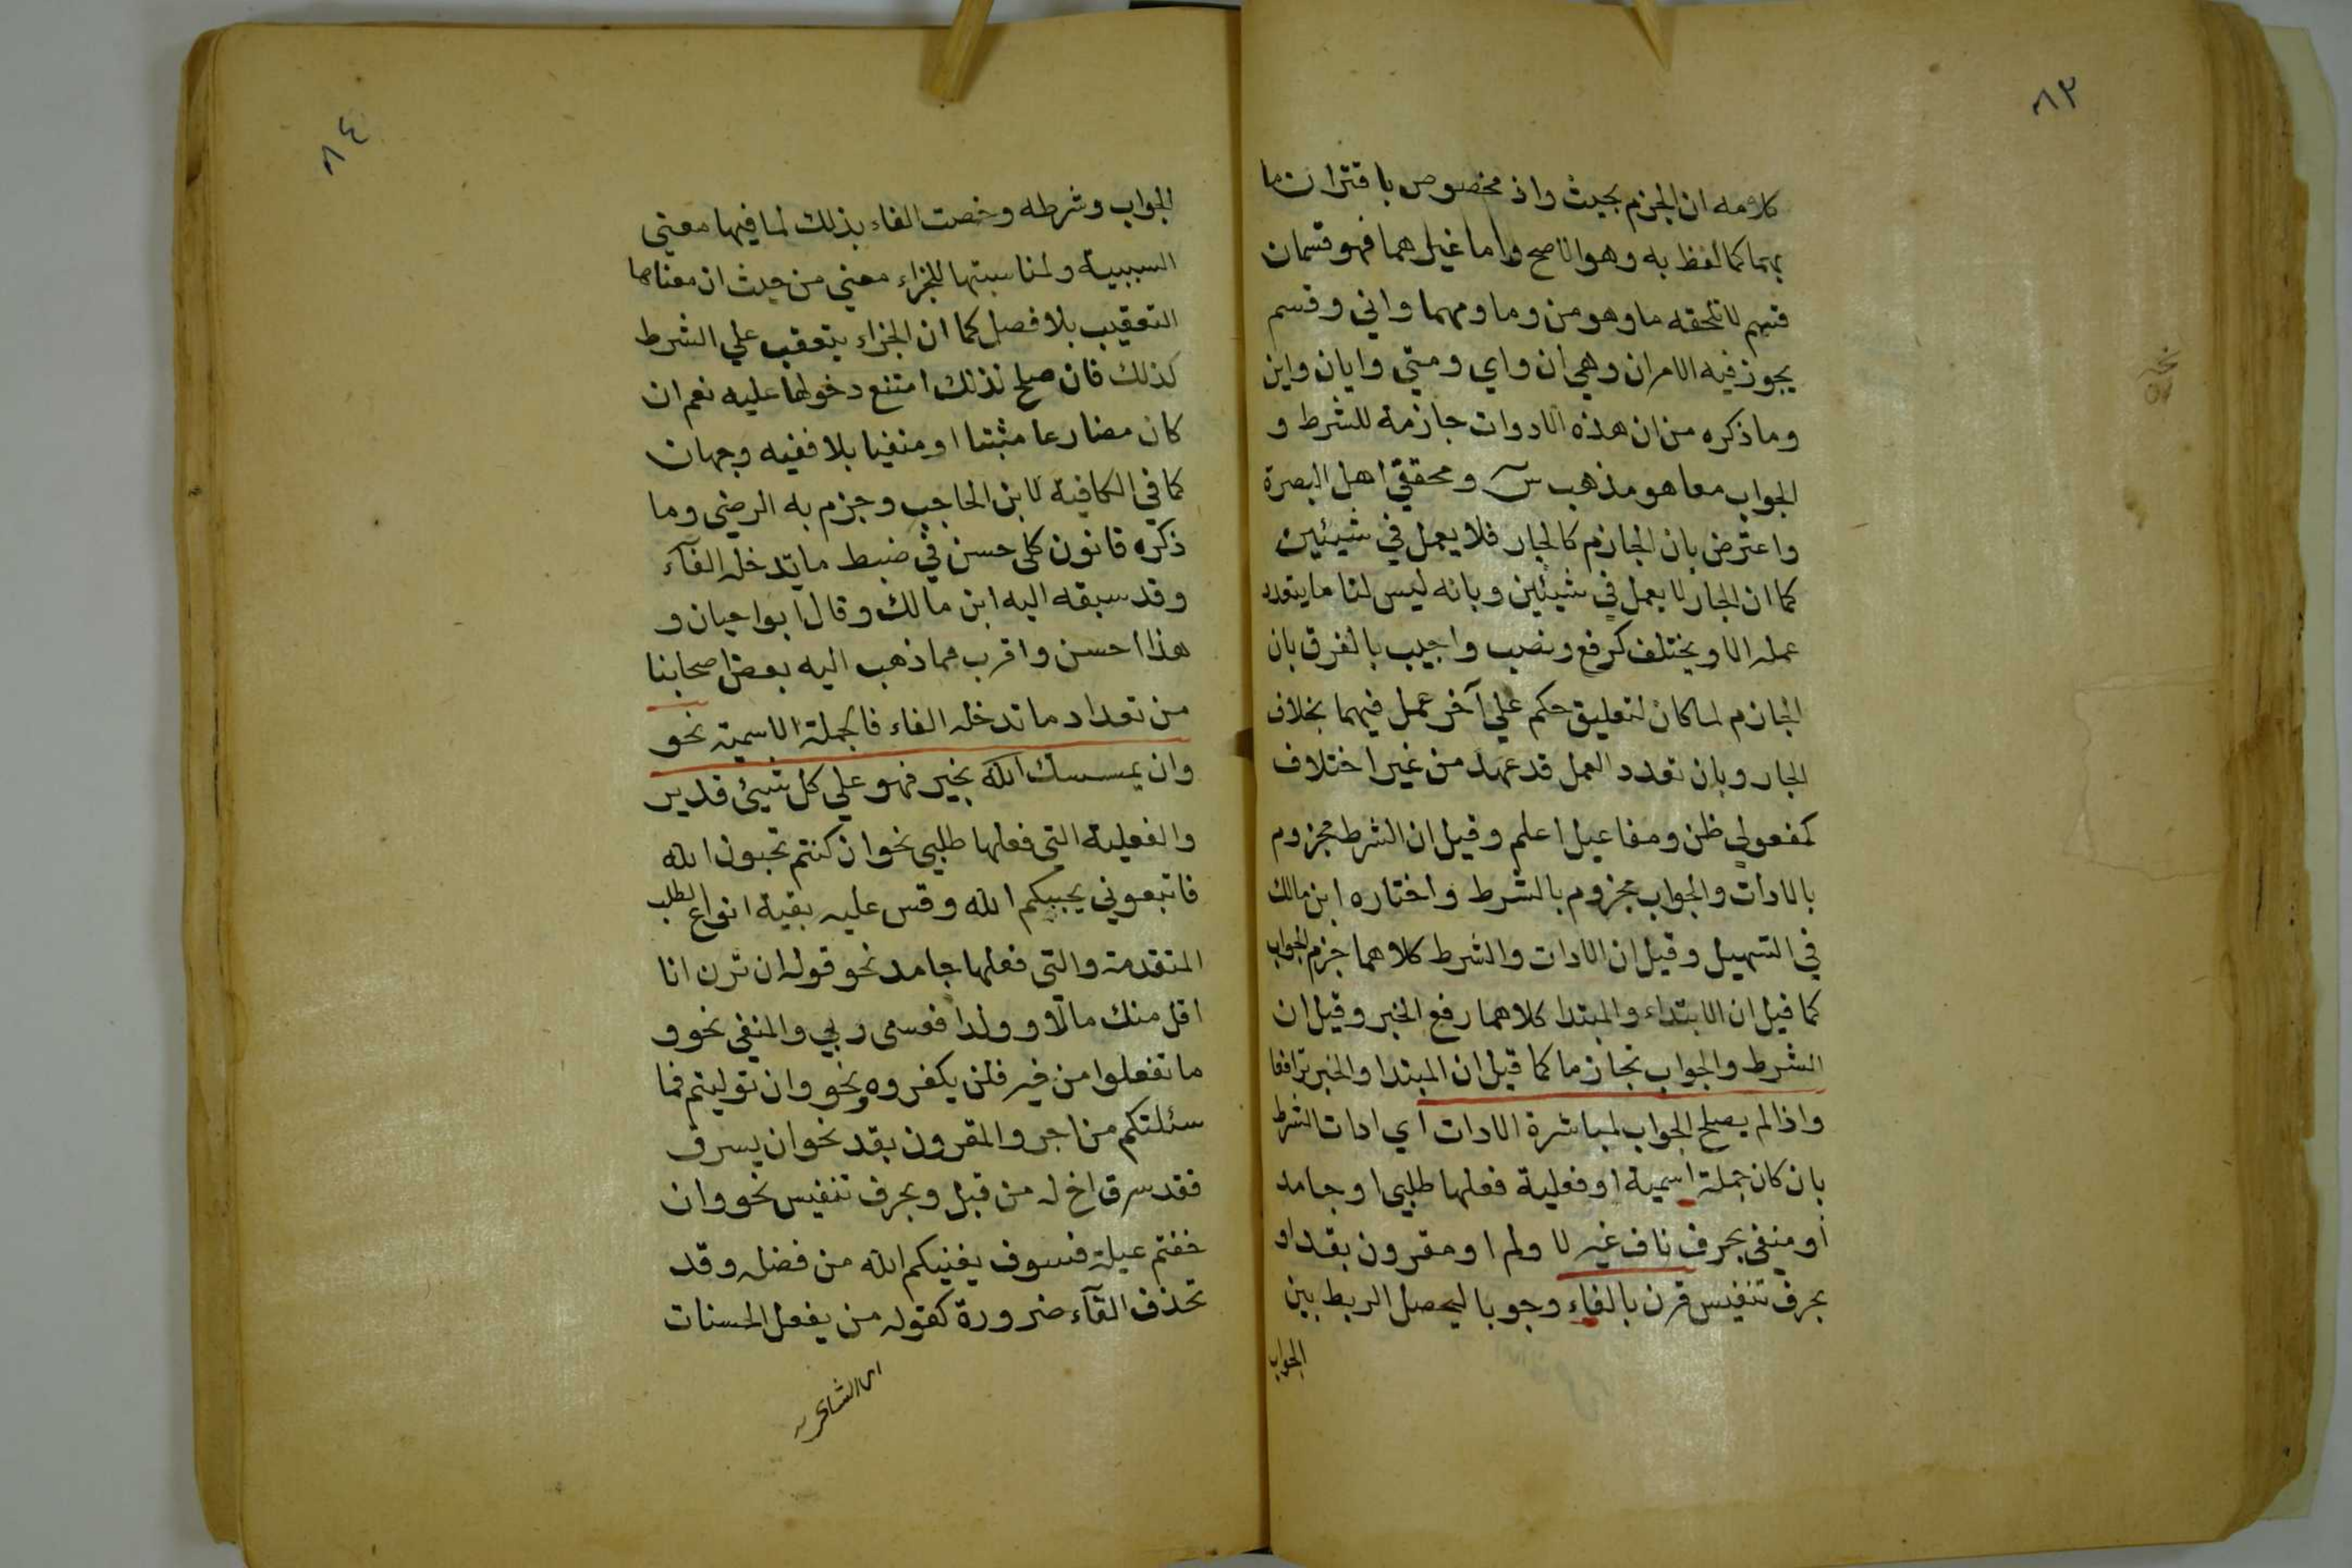 ٨٣
كلامه ان الجزم بحيث واذ مخصوص باقتران ما
بهما كما لفظ به وهو الاصح واما غيرهما فهو قسمان
قسم لا تلحقه ما وهو من وما ومهما واني وقسم
يجوز فيه الامران وهي ان واي ومتي وايان واين
وما ذكره من ان هذه الادوات جازمة للشرط و
الجواب معا هو مذهب س ومحققي اهل البصرة
واعترض بان الجازم كالجار فلا يعمل في شيئين
كما ان الجار لا يعمل في شيئين وبانه ليس لنا ما يتعدد
عمله الا ويختلف كرفع ونصب واجيب بالفرق بان
الجازم لما كان لتعليق حكم علي آخر عمل فيهما بخلاف
الجار وبان تعدد العمل قد عهد من غير اختلاف
كمفعولي ظن ومفاعيل اعلم وقيل ان الشرط مجزوم
بالادات والجواب مجزوم بالشرط واختاره ابن مالك
في التسهيل وقيل ان الادات والشرط كلاهما جزم الجواب
كما قيل ان الابتداء والمبتدا كلاهما رفع الخبر وقيل ان
الشرط والجواب تجازما كما قيل ان المبتدا والخبر ترافعا
واذا لم يصلح الجواب لمباشرة الادات اي ادات الشرط
بان كان جملة اسمية او فعلية فعلها طلبي او جامد
او منفي بحرف ناف غير لا ولم او مقرون بقد او
بحرف تنفيس قرن بالفاء وجوبا ليحصل الربط بين
الجواب
٨٤
الجواب وشرطه وخصت الفاء بذلك لما فيها معني
السببية ولمناسبتها للجزاء معني من حيث ان معناها
التعقيب بلا فصل كما ان الجزاء يتعقب علي الشرط
كذلك فان صلح لذلك امتنع دخولها عليه نعم ان
كان مضارعا مثبتا او منفيا بلا ففيه وجهان
كما في الكافية لابن الحاجب وجزم به الرضي وما
ذكره قانون كلي حسن في ضبط ما تدخله الفآء
وقد سبقه اليه ابن مالك وقال ابوا حيان و
هذا احسن واقرب مما ذهب اليه بعض اصحابنا
من تعداد ما تدخله الفاء فالجملة الاسمية نحو
وان يمسسك الله بخير فهو علي كل شيئ قدير
والفعلية التي فعلها طلبي نحو ان كنتم تحبون الله
فاتبعوني يحببكم الله وقس عليه بقية انواع الطلب
المتقدمة والتي فعلها جامد نحو قوله ان ترن انا
اقل منك مالا وولدا فعسى ربي والمنفي نحو و
ما تفعلوا من خير فلن يكفروه ونحو وان توليتم فما
سئلتكم من اجر والمقرون بقد نحو ان يسرق
فقد سرق اخ له من قبل وبحرف تنفيس نحو وان
خفتم عيلة فسوف يغنيكم الله من فضله وقد
تحذف الفآء ضرورة كقوله من يفعل الحسنات